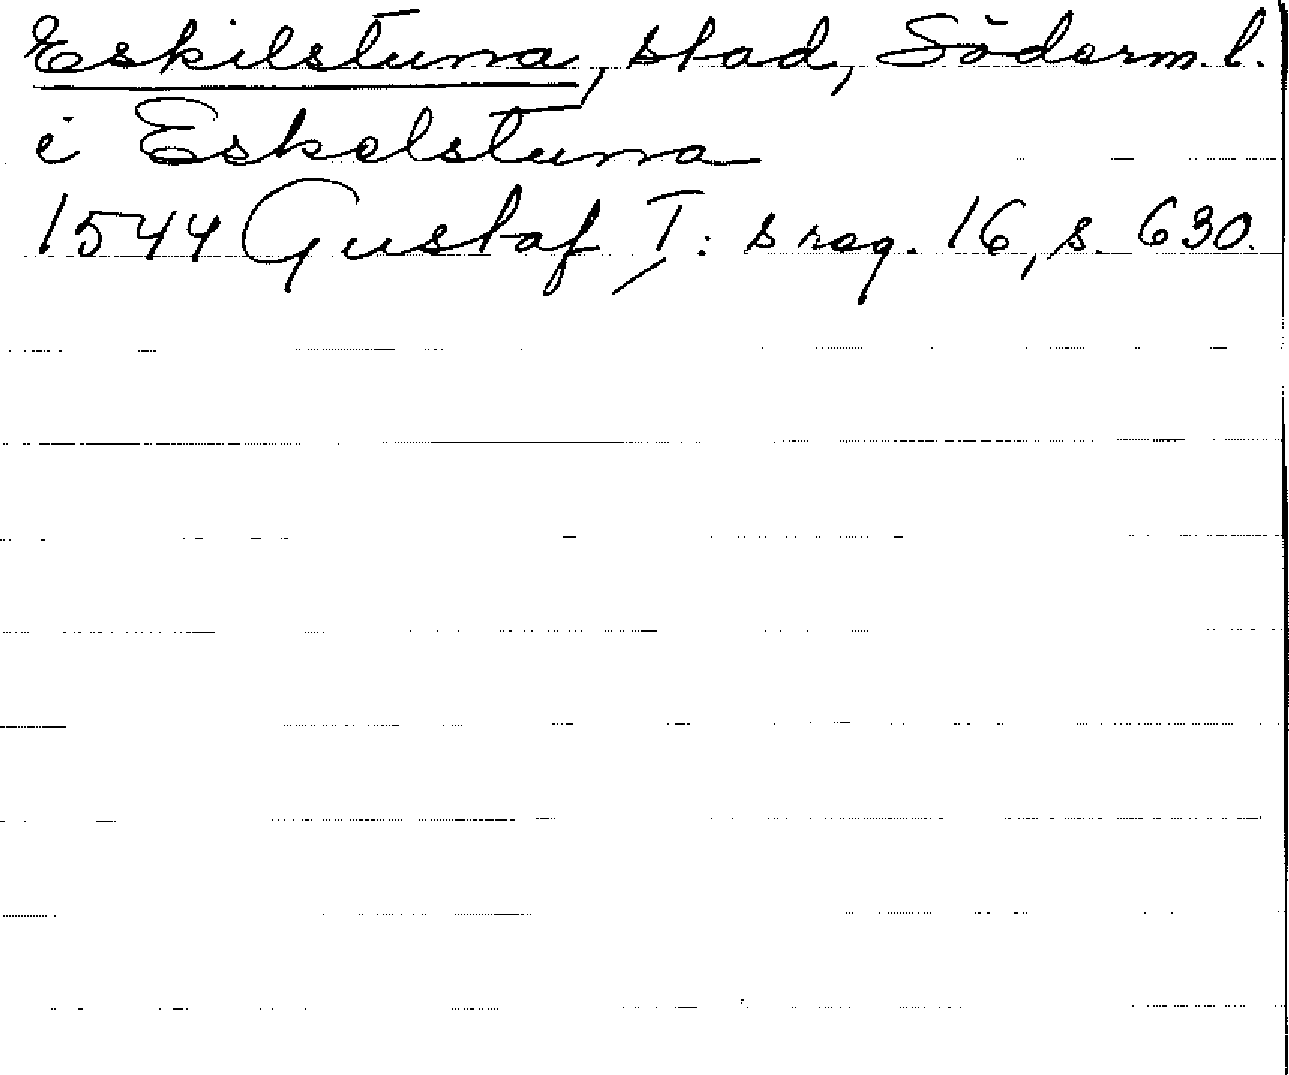 Eskilstuna, stad, Söderm. l.
i Eskelstuna
1544 Gustaf I: s reg. 16, s. 630.